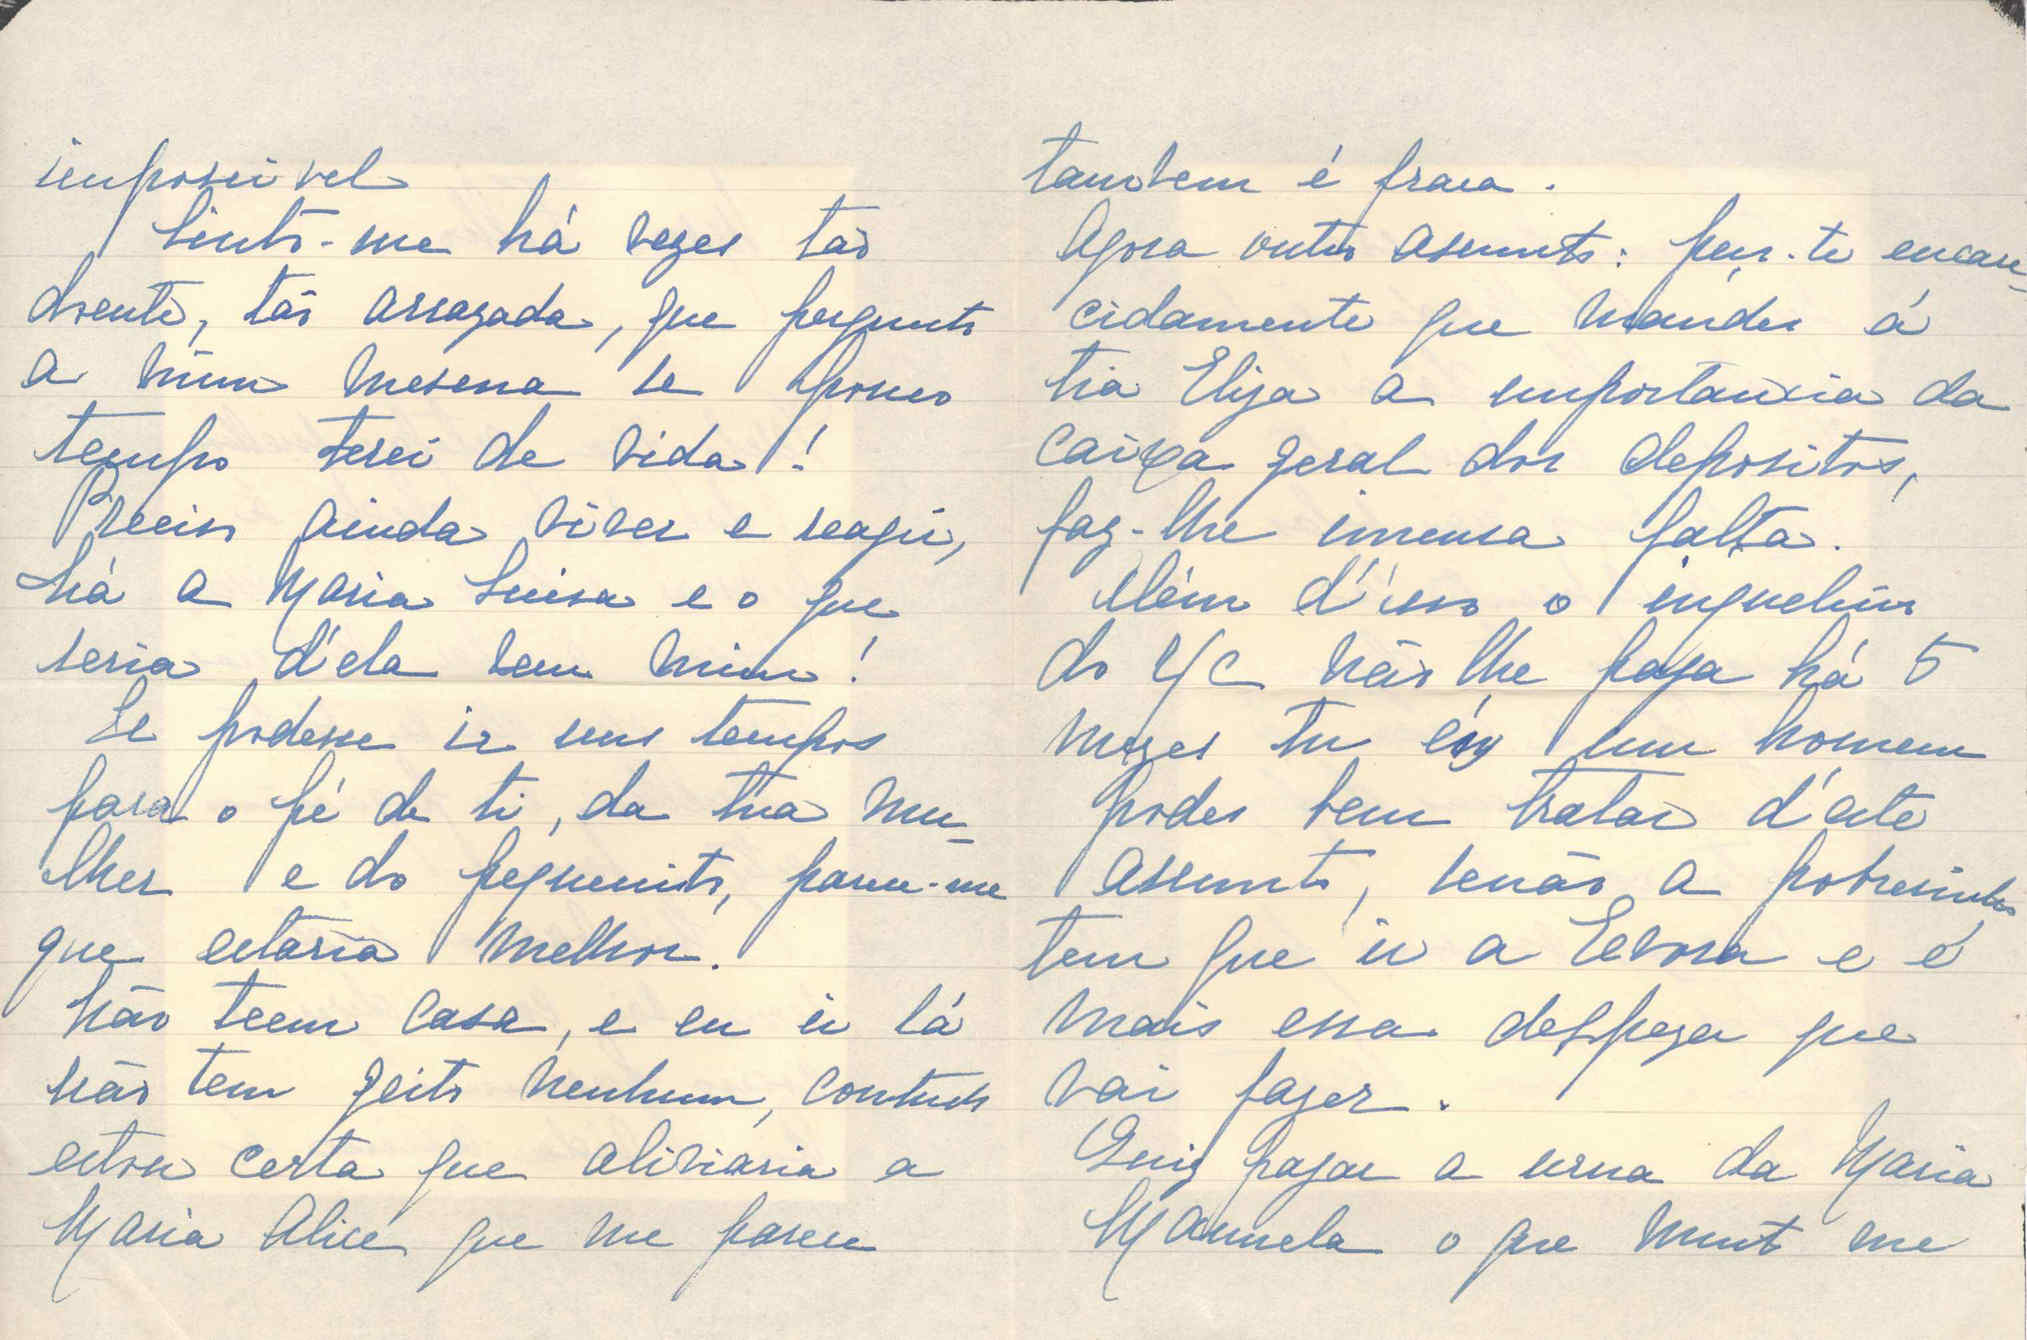 impossivel
Sinto-me há vezes tão
doente, tão arrazada, que pergunto
a mim mesma se pouco
tempo terei de vida!
Preciso ainda viver e reagir,
há a Maria Luisa e o que
seria d'ela sem mim!
Se podesse ir uns tempos
para o pé de ti, da tua mu-
lher e do pequenito, parece-me
que estaria melhor.
Não teem casa, e eu ir lá
não tem geito nenhum, contudo
estou certa que aliviaria a
Maria Alice que me parece
tambem é fraca.
Agora outro assunto: peço-te encare-
cidamente que mandes á
tia Eliza a importancia da
caixa geral dos depositos,
faz-lhe imensa falta.
Além d'isso o inquelino
do r/c não lhe paga há 5
mezes tu és um homem
podes bem tratar d'este
assunto, senão a pobresinha
tem que ir a Evora e é
mais essa despeza que
vai fazer.
Quiz pagar a urna da Maria
Manuela o que muito me